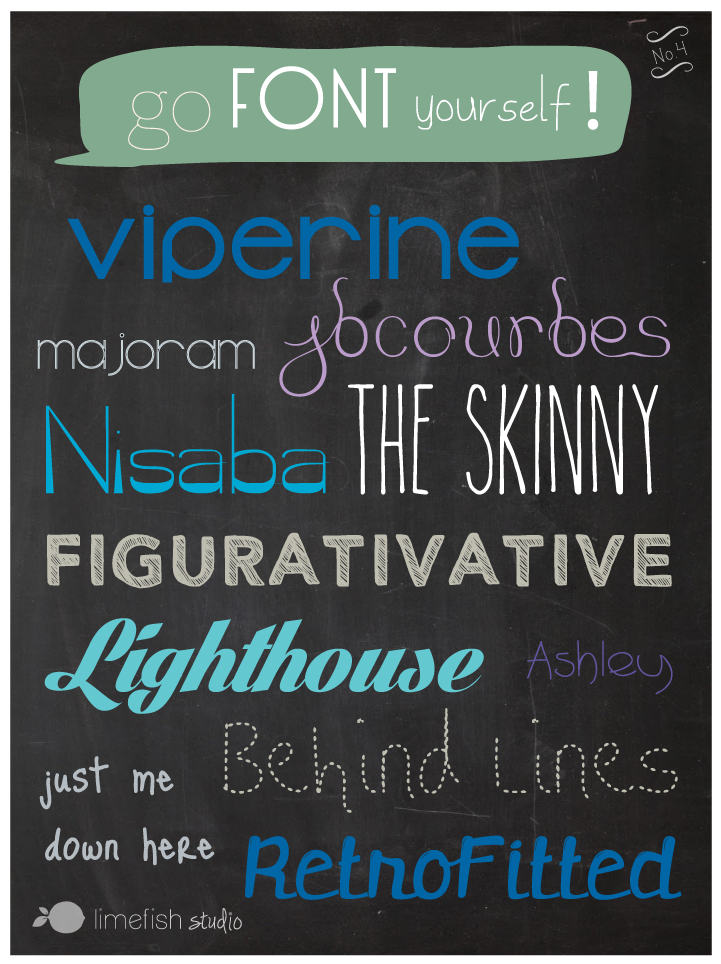 No. 4
go FONT yourself!
viperine
majoram jbcourbes
Nisaba THE SKINNY
FIGURATIVATIVE
Lighthouse Ashley
Behind Lines
just me
down here
RetroFitted
limefish studio